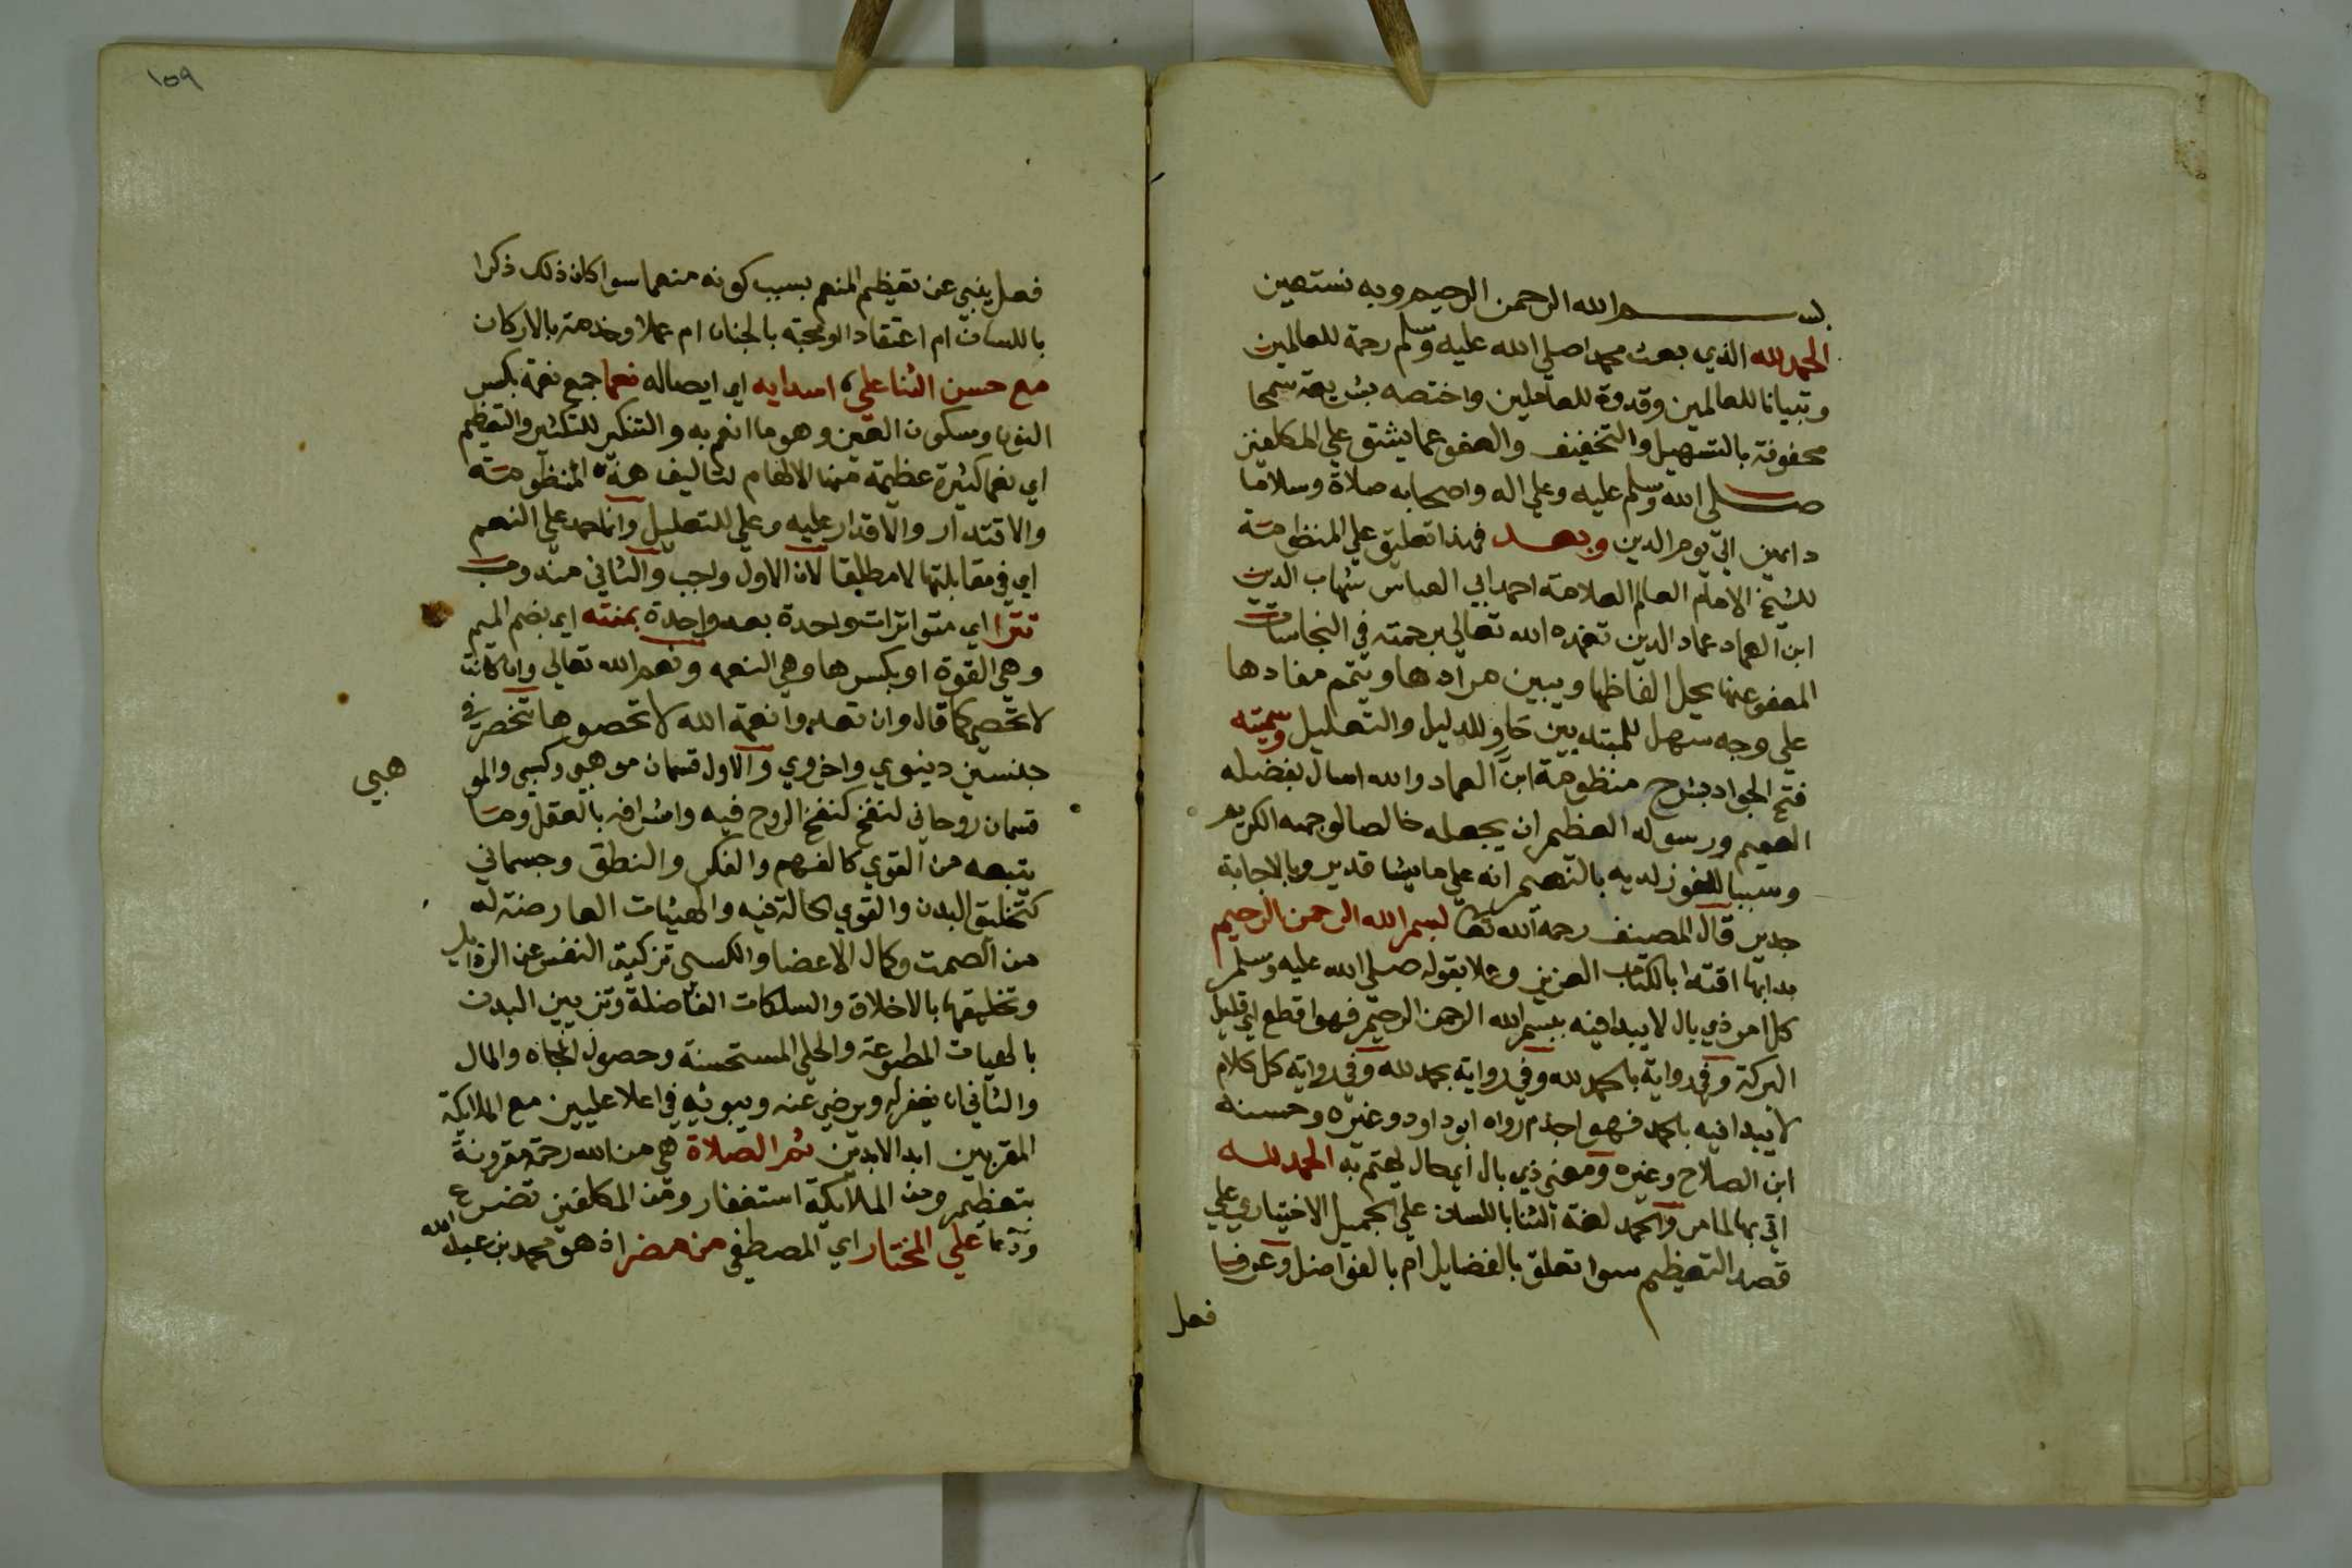 بسم الله الرحمن الرحيم وبه نستعين
الحمد لله الذي بعث محمدا صلي الله عليه وسلم رحمة للعالمين
وتبيانا للعالمين وقدوة للعاملين واختصه بشريعة سمحا
محفوفة بالتسهيل والتخفيف والعفو عما يشق علي المكلفين
صلي الله وسلم عليه وعلي اله واصحابه صلاة وسلاما
دايمين الي يوم الدين وبعد فهذا تعليق علي المنظومة
للشيخ الامام العالم العلامة احمد ابي العباس شهاب الدين
ابن العماد عماد الدين تغمده الله تعالي برحمته في النجاسات
المعفو عنها يحل الفاظها ويبين مرادها ويتمم مفادها
علي وجه سهل للمبتديين حاو للدليل والتعليل وسميته
فتح الجواد بشرح منظومة ابن العماد والله اسال بفضله
العميم ورسوله العظيم ان يجعله خالصا لوجهه الكريم
وسببا للفوز لديه بالنعيم انه علي ما يشا قدير وبالاجابة
جدير قال المصنف رحمه الله تعا بسم الله الرحمن الرحيم
بدا بها اقتدا بالكتاب العزيز وعملا بقوله صلي الله عليه وسلم
كل امر ذي بال لا يبدا فيه ببسم الله الرحمن الرحيم فهو اقطع اي قليل
البركة وفي رواية بالحمد لله وفي رواية بحمد لله وفي رواية كل كلام
لا يبدا فيه بالحمد فهو اجذم رواه ابو داود وغيره وحسنه
ابن الصلاح وغيره ومعني ذي بال اي حال يهتم به الحمد لله
اتي بها لما مر والحمد لغة الثنا باللسان علي الجميل الاختياري علي
قصد التعظيم سوا تعلق بالفضايل ام بالفواضل وعرفا
فعل
١٥٩
فعل ينبي عن تعظيم المنعم بسبب كونه منعما سوا كان ذلك ذكرا
باللسان ام اعتقادا ومحبة بالجنان ام عملا وخدمة بالاركان
مع حسن الثنا علي اسدايه اي ايصاله نعما جمع نعمة بكسر
النون وسكون العين وهو ما انعم به والتنكير للتكثير والتعظيم
اي نعما كثيرة عظيمة منها الالهام لتاليف هذه المنظومة
والاقتدار والاقدار عليه وعلي للتعليل وانما حمد علي النعم
اي في مقابلتها لا مطلقا لان الاول واجب والثاني مندوب
تترا اي متواترات واحدة بعد واحدة بمنته اي بضم الميم
وهي القوة او بكسرها وهي النعمه ونعم الله تعالي وان كانت
لا تحصي كما قال وان تعدوا نعمة الله لا تحصوها تنحصر في
جنسين دينوي واخروي والاول قسمان موهبي وكسبي والمو
هبي
قسمان روحاني لنفخ كنفخ الروح فيه واشراقه بالعقل وما
يتبعه من القوي كالفهم والفكر والنطق وجسماني
كتخليق البدن والقوي الحالة فيه والهيئات العارضة له
من الصحت وكمال الاعضا والكسبي تزكية النفس عن الرذايل
وتخليقها بالاخلاق والسلكات الفاضلة وتزيين البدن
بالهيات المطبوعة والحلي المستحسنة وحصول الجاه والمال
والثاني ان يغفر له ويرضي عنه ويبوئه في اعلا عليين مع الملايكة
المقربين ابد الابدين ثم الصلاة هي من الله رحمة مقرونة
بتعظيم ومن الملايكة استغفار ومن المكلفين تضرع
ودعا علي المختار اي المصطفي من مضر اذ هو محمد بن عبد الله